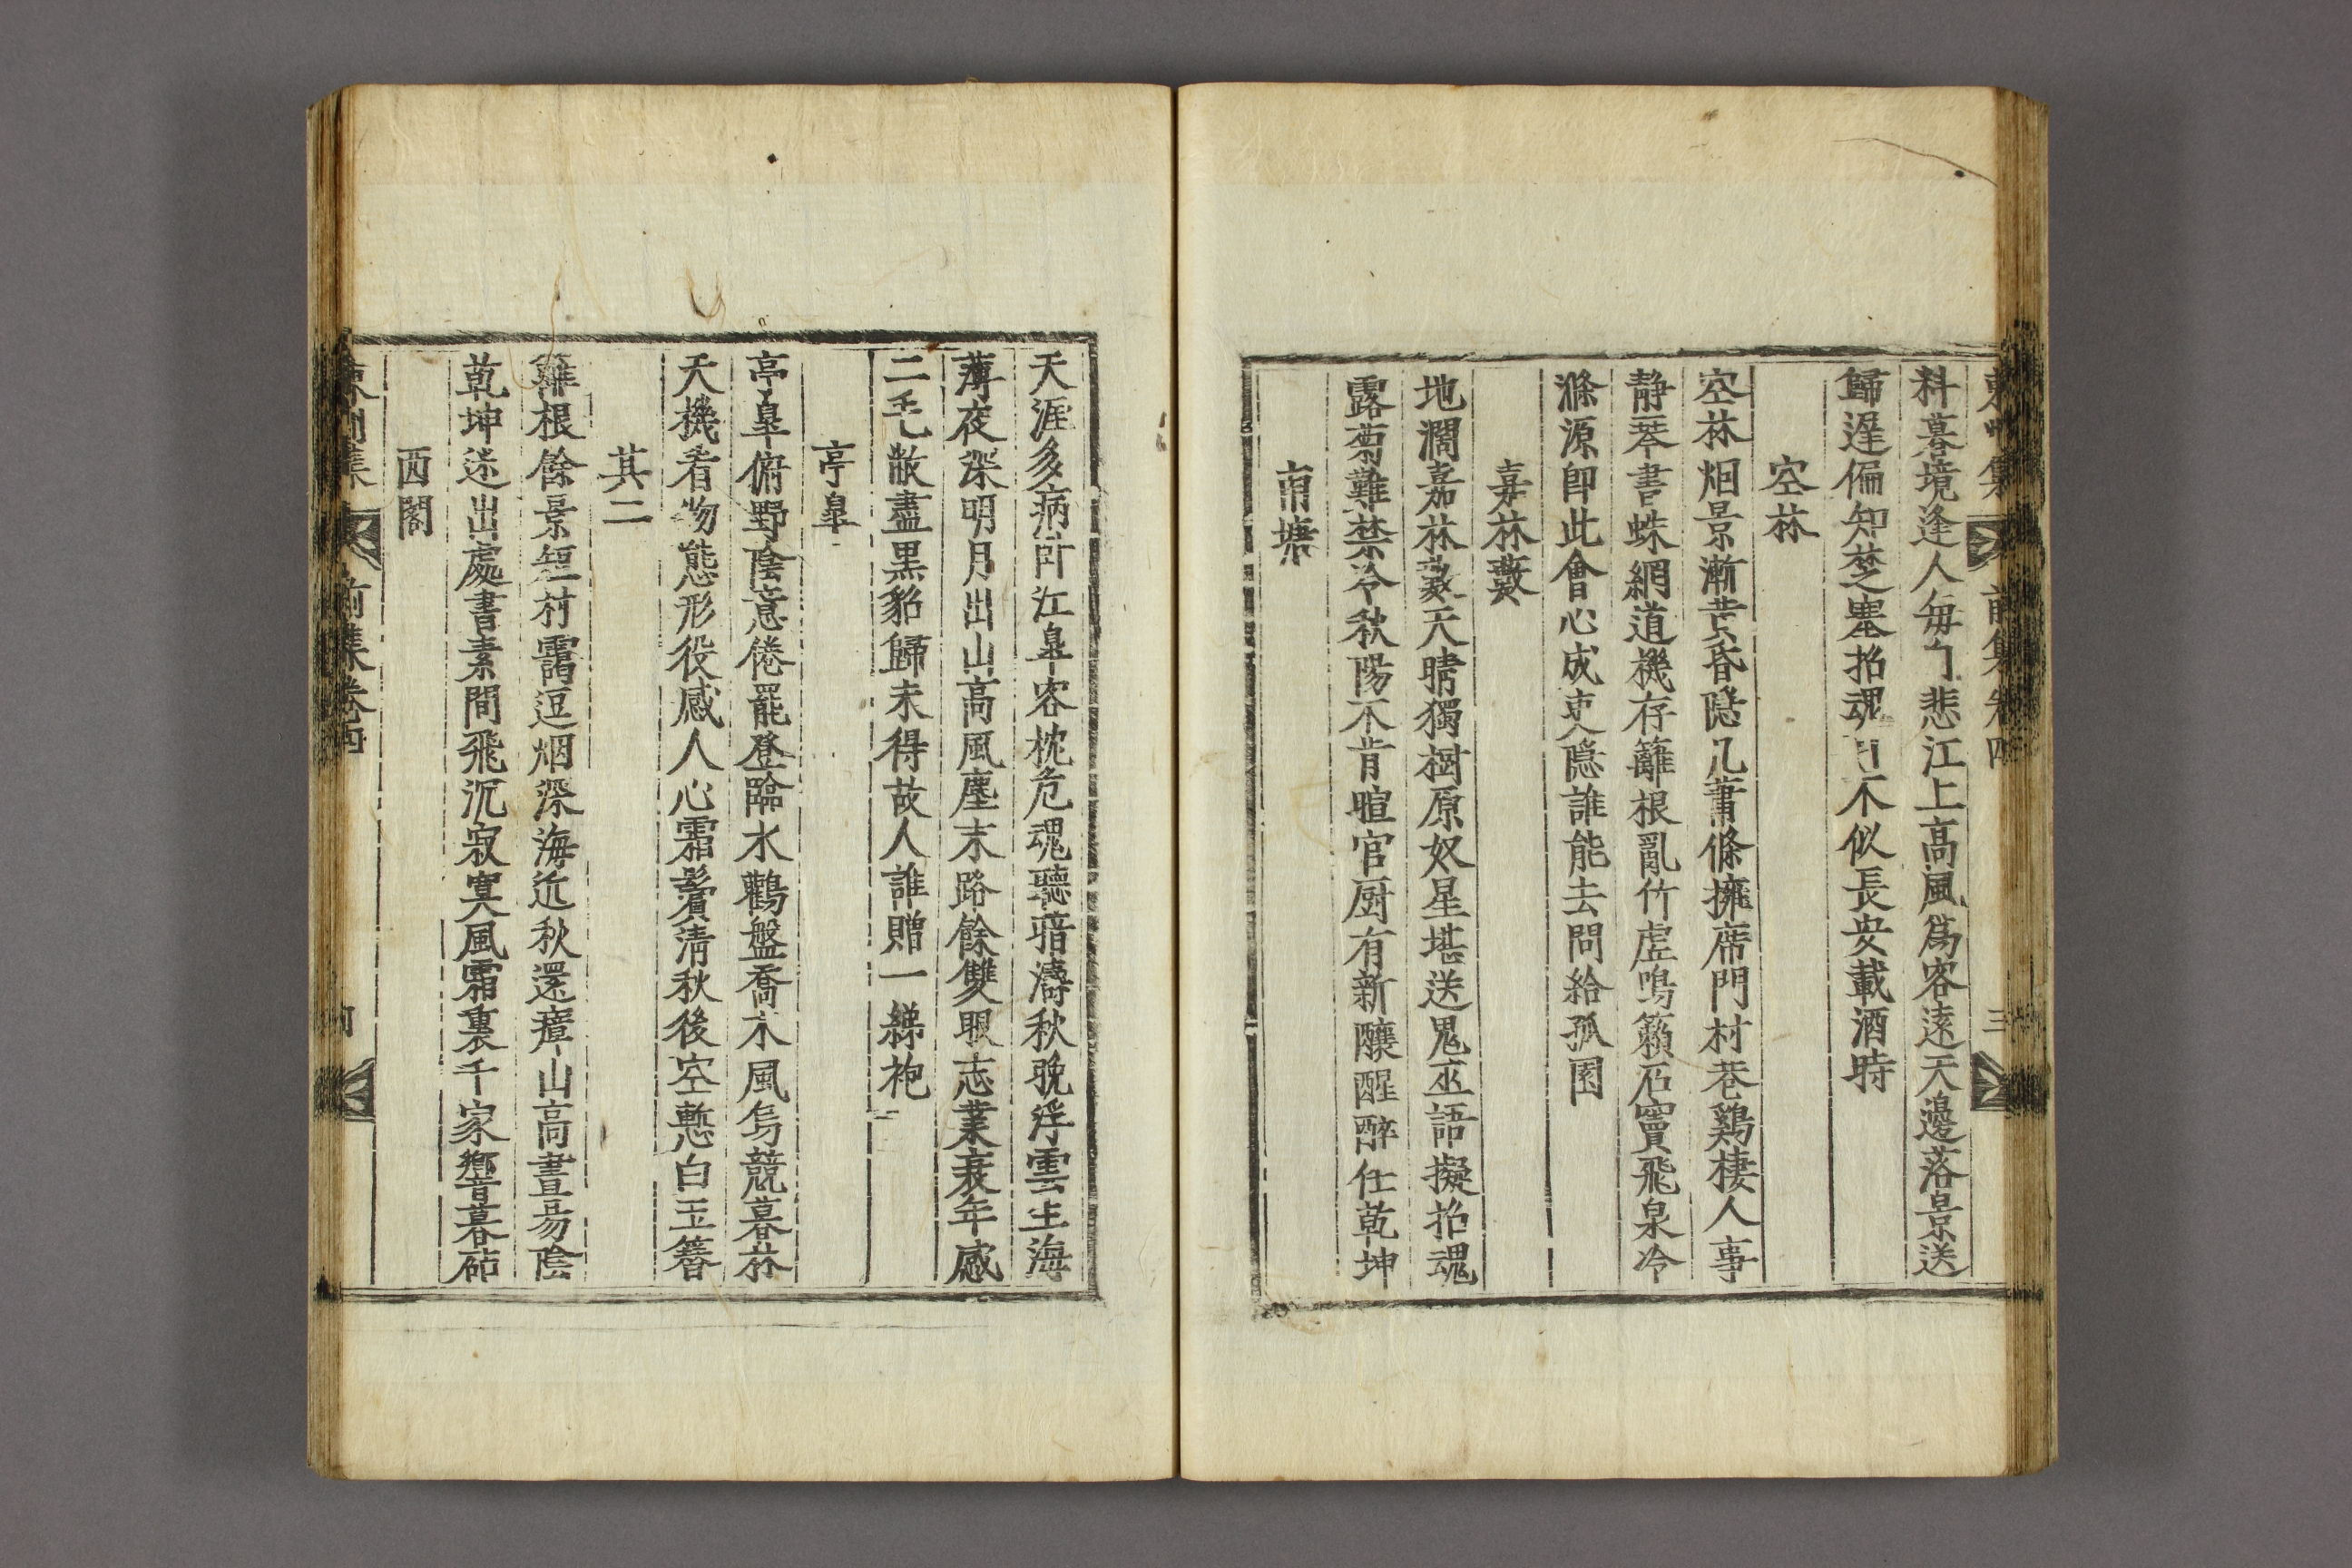 東 集 前集卷四 三
料暮境逢人每自悲江上高風爲客遠天邊落景送
歸遲偏知楚塞招魂 不似長安載酒時
空林
空林烟景漸黄昏隱几蕭條擁席門村巷鷄棲人事
静琴書蛛網道機存籬根亂竹虛鳴籟石竇飛泉冷
滌源卽此會心成吏隱誰能去問給孤園
嘉林藪
地濶嘉林藪天晴獨樹原奴星堪送鬼巫語擬招魂
露菊難禁冷秋陽不肯暄官厨有新釀醒醉任乾坤
南塘
天涯多病卧江皐客枕危魂聽暗濤秋晚浮雲生海
薄夜深明月出山高風塵末路餘雙眼志業衰年感
二毛敝盡黑貂歸未得故人誰贈一綈袍
亭皐
亭皐俯野陰意倦罷登臨水鸛盤喬木風烏競暮林
天機看物態形役感人心霜鬢清秋後空慙白玉簪
其二
籬根餘景短村靄逗烟深海近秋還瘴山高晝易陰
乾坤迷出處書素間飛沉寂寞風霜裏千家響暮砧
西閣
集 前集卷四 四